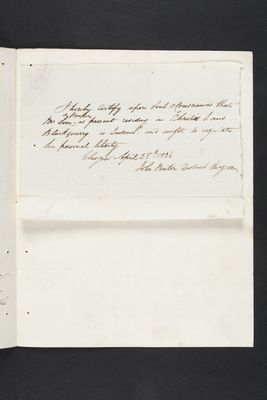 I hereby certify upon Soul & Conscience that
Mrs Sim at present residing in Lane
Blackquarry is Insane and unfit to regulate
her personal liberty
Glasgow April 28th 1836
John District Surgeon